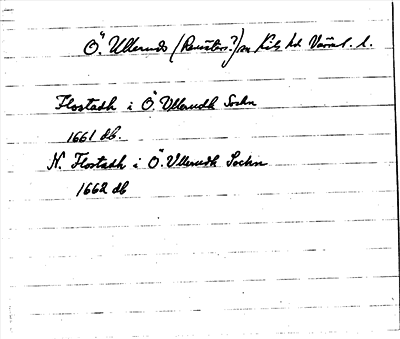 Ö. Ulleruds sn Kils hd. Värml. l.
Flostadh i Ö. Ullerudh Sochn
1661 db.
N. Flostadh i Ö. Ullerudh Sochn
1662 db